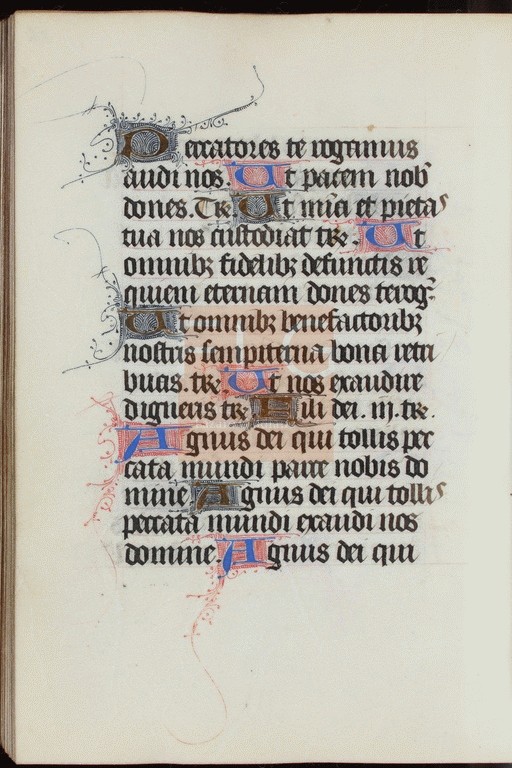 Peccatores te rogamus
audi nos. Ut pacem nob
dones. Te. Ut mia et pietas
tua nos custodiat te. Ut
omnibꝫ fidelibꝫ defunctis re
quiem eternam dones terog
Ut omnibꝫ benefactoribꝫ
nostris sempiterna bona retri
buas. te. Ut nos exaudire
digneris te. Fili dei. iii. te.
Agnus dei qui tollis pec
cata mundi parce nobis do
mine Agnus dei qui tollis
peccata mundi exaudi nos
domine. Agnus dei qui